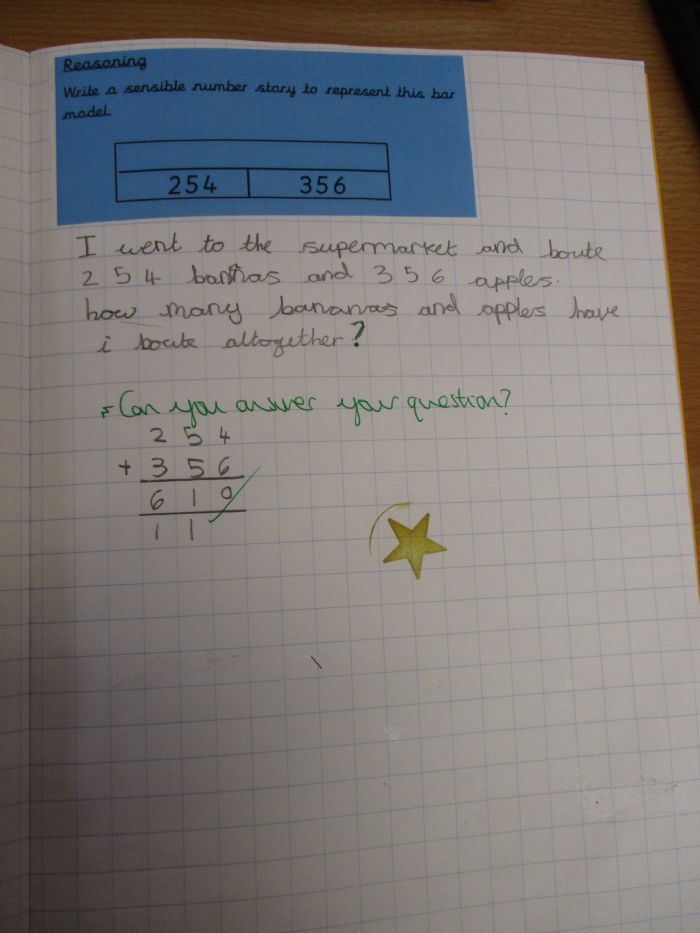 Reasoning
Write a sensible number story to represent this bar
model.
254 356
I went to the supermarket and boute
254 bannas and 356 apples.
how many bananas and apples have
i boute altogether?
Can you answer your question?
254
+ 356
610
11